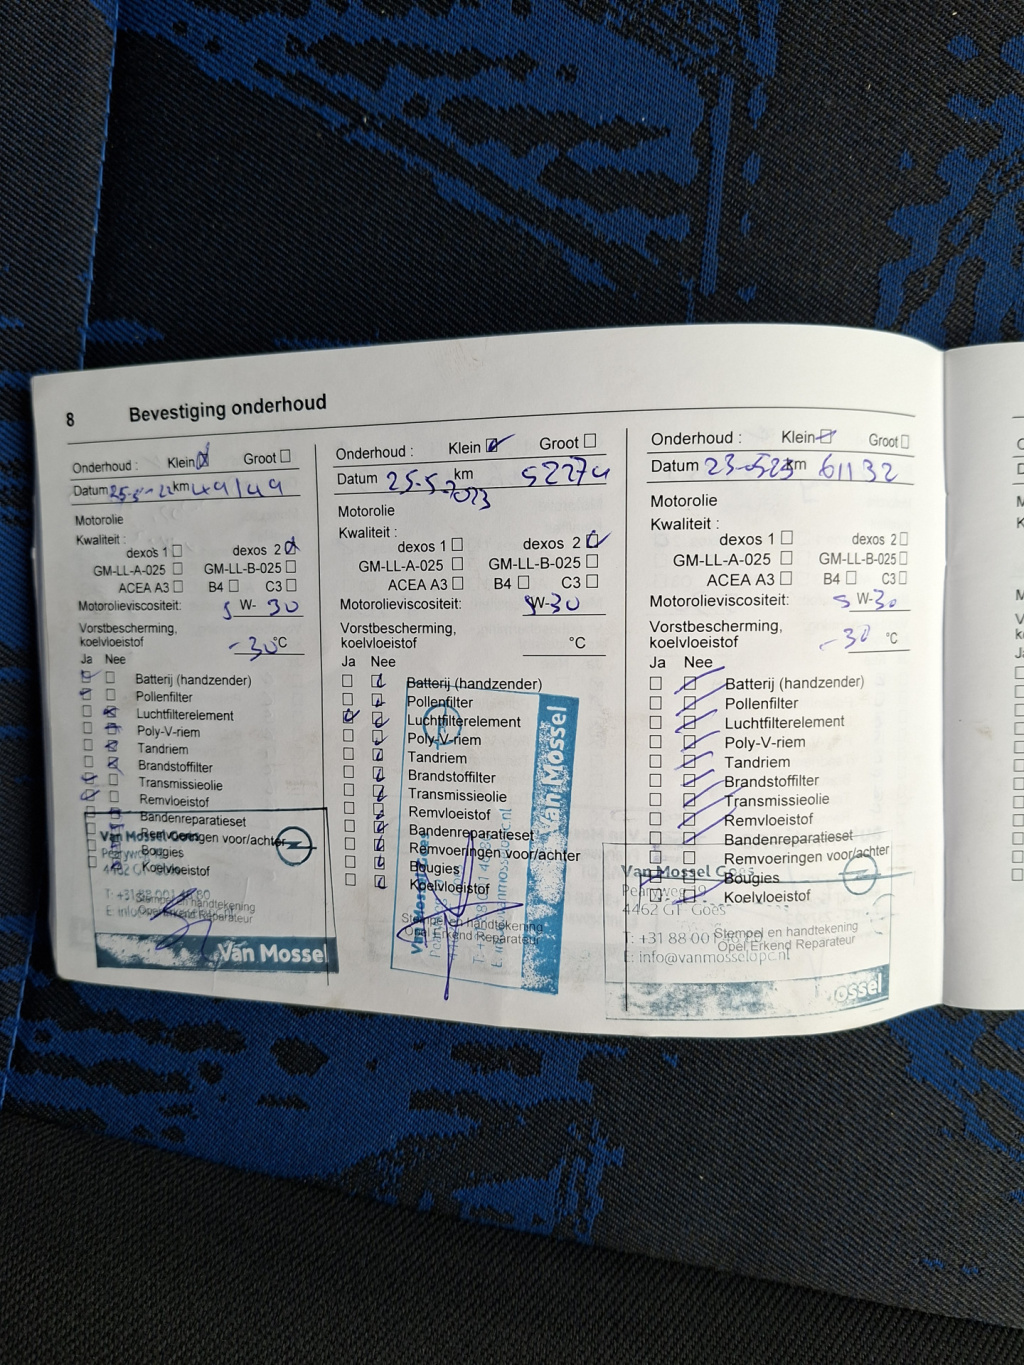 8 Bevestiging onderhoud
Onderhoud : Klein Groot
Datum 25-5-22 km 49149
Motorolie
Kwaliteit :
dexos 1 dexos 2
GM-LL-A-025 GM-LL-B-025
ACEA A3 B4 C3
Motorolieviscositeit: 5 W- 30
Vorstbescherming,
koelvloeistof -30 °C
Ja Nee
Batterij (handzender)
Pollenfilter
Luchtfilterelement
Poly-V-riem
Tandriem
Brandstoffilter
Transmissieolie
Remvloeistof
Bandenreparatieset
Remvoeringen voor/achter
Bougies
Koelvloeistof
Van Mossel Goes
Stempel en handtekening
Opel Erkend Reparateur
Van Mossel
Onderhoud : Klein Groot
Datum 25-5-2023 km 52274
Motorolie
Kwaliteit :
dexos 1 dexos 2
GM-LL-A-025 GM-LL-B-025
ACEA A3 B4 C3
Motorolieviscositeit: 5W-30
Vorstbescherming,
koelvloeistof °C
Ja Nee
Batterij (handzender)
Pollenfilter
Luchtfilterelement
Poly-V-riem
Tandriem
Brandstoffilter
Transmissieolie
Remvloeistof
Bandenreparatieset
Remvoeringen voor/achter
Bougies
Koelvloeistof
Stempel en handtekening
Opel Erkend Reparateur
Van Mossel
Onderhoud : Klein Groot
Datum 23-0523 km 61132
Motorolie
Kwaliteit :
dexos 1 dexos 2
GM-LL-A-025 GM-LL-B-025
ACEA A3 B4 C3
Motorolieviscositeit: 5 W-30
Vorstbescherming,
koelvloeistof -30 °C
Ja Nee
Batterij (handzender)
Pollenfilter
Luchtfilterelement
Poly-V-riem
Tandriem
Brandstoffilter
Transmissieolie
Remvloeistof
Bandenreparatieset
Remvoeringen voor/achter
Bougies
Koelvloeistof
Van Mossel Goes
4462 GT Goes
T: +31 88 00
Stempel en handtekening
Opel Erkend Reparateur
E: info@vanmosselopc.nl
ossel